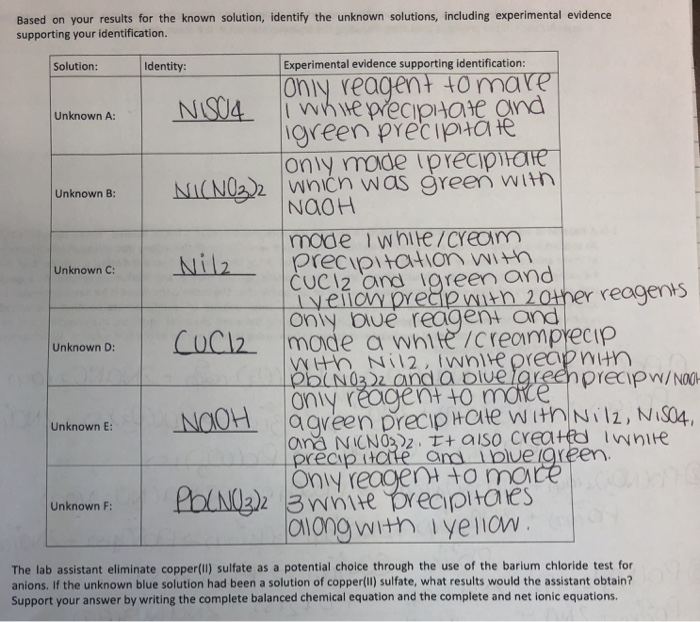 Based on your results for the known solution, identify the unknown solutions, including experimental evidence
supporting your identification.
Solution:
Identity:
Experimental evidence supporting identification:
Unknown A:
NiSO4
Only reagent to make
1 white precipitate and
1green precipitate
Unknown B:
Ni(NO3)2
only made 1precipitate
which was green with
NaOH
Unknown C:
NiI2
made 1 white/cream
precipitation with
CuCl2 and 1green and
1 yellow precip with 2 other reagents
Unknown D:
CuCl2
Only blue reagent and
made a white/cream precip
with NiI2, 1white precip with
Pb(NO3)2 and a blue/green precip w/NaOH
Unknown E:
NaOH
Only reagent to make
a green precipitate with NiI2, NiSO4,
and Ni(NO3)2. It also created 1white
precipitate and 1blue/green.
Unknown F:
Pb(NO3)2
Only reagent to make
3 white precipitates
along with 1 yellow.
The lab assistant eliminate copper(II) sulfate as a potential choice through the use of the barium chloride test for
anions. If the unknown blue solution had been a solution of copper(II) sulfate, what results would the assistant obtain?
Support your answer by writing the complete balanced chemical equation and the complete and net ionic equations.